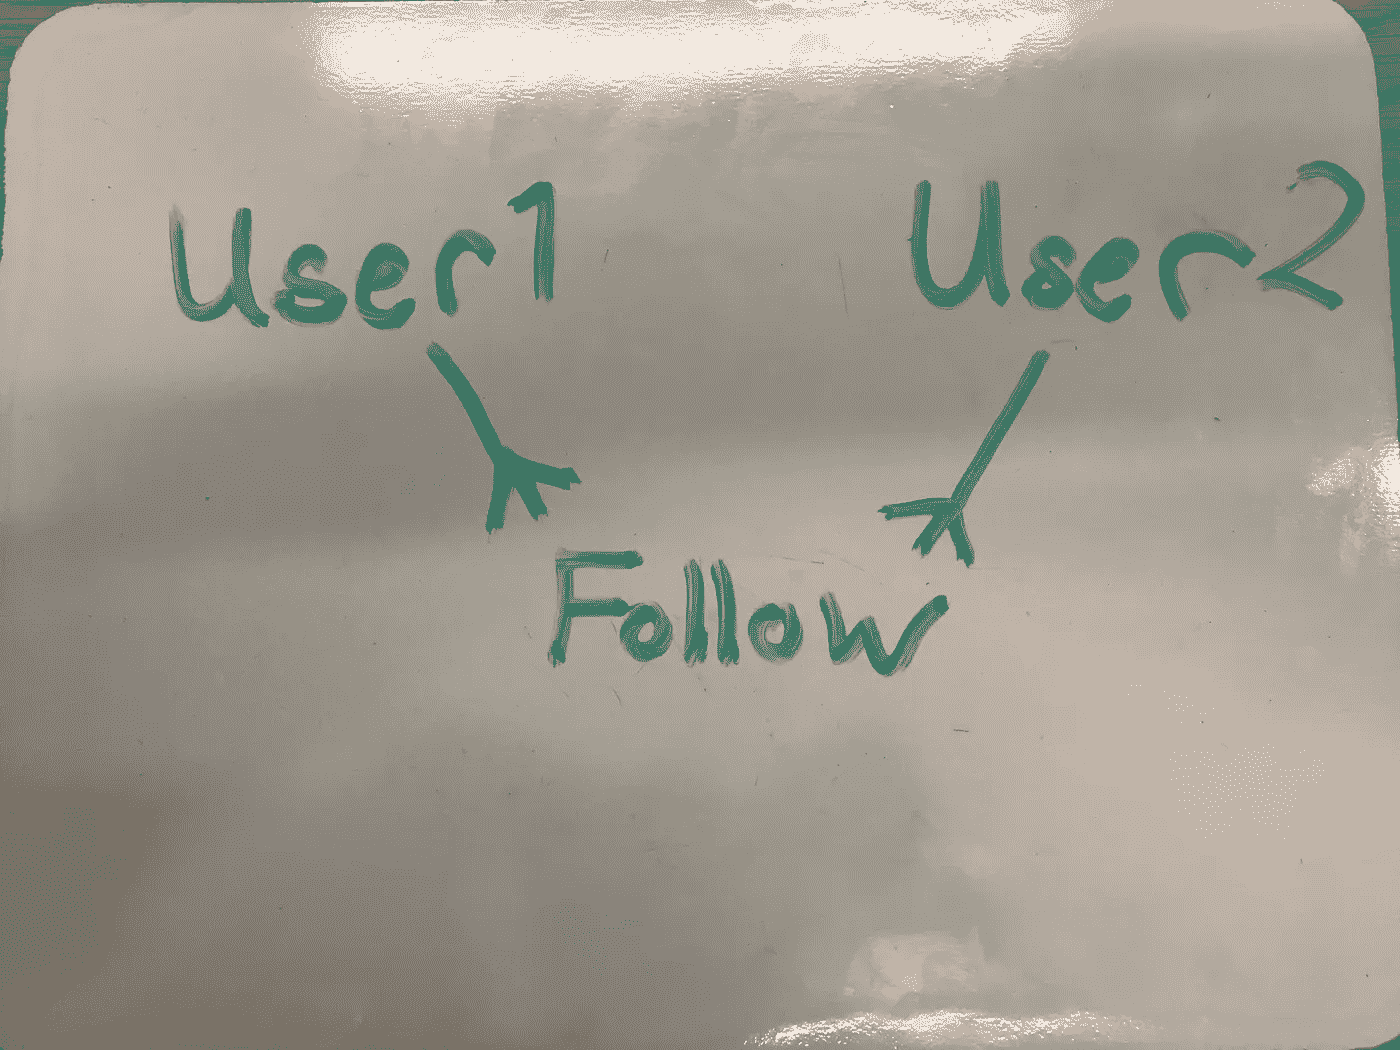 User1 User2
Follow